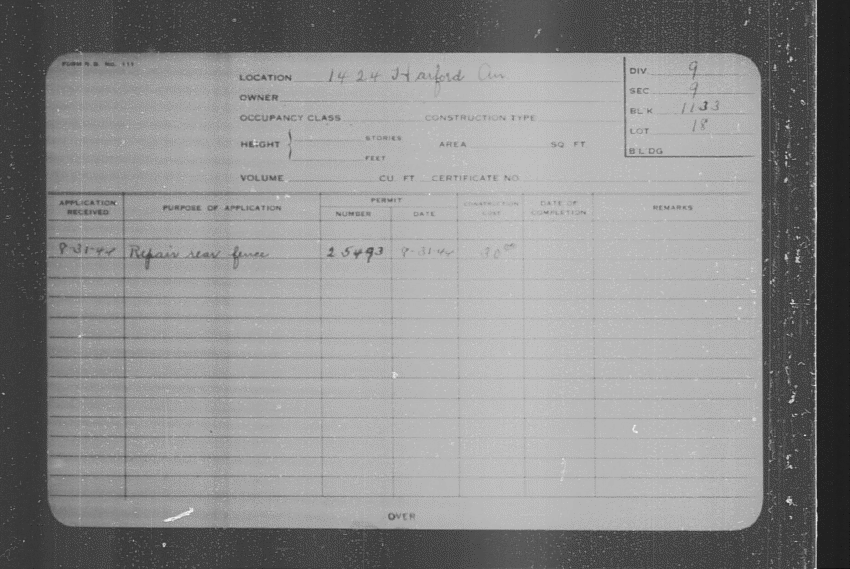 FORM R.B. No. 111
LOCATION 1424 Harford Av.
OWNER
OCCUPANCY CLASS CONSTRUCTION TYPE
HEIGHT { STORIES AREA SQ. FT.
FEET
VOLUME CU. FT. CERTIFICATE NO.
DIV. 9
SEC. 9
BL'K 1133
LOT 18
B'L'DG
APPLICATION RECEIVED PURPOSE OF APPLICATION PERMIT NUMBER DATE CONSTRUCTION COST DATE OF COMPLETION REMARKS
8-31-44 Repair rear fence 25493 8-31-44 30⁰⁰
OVER